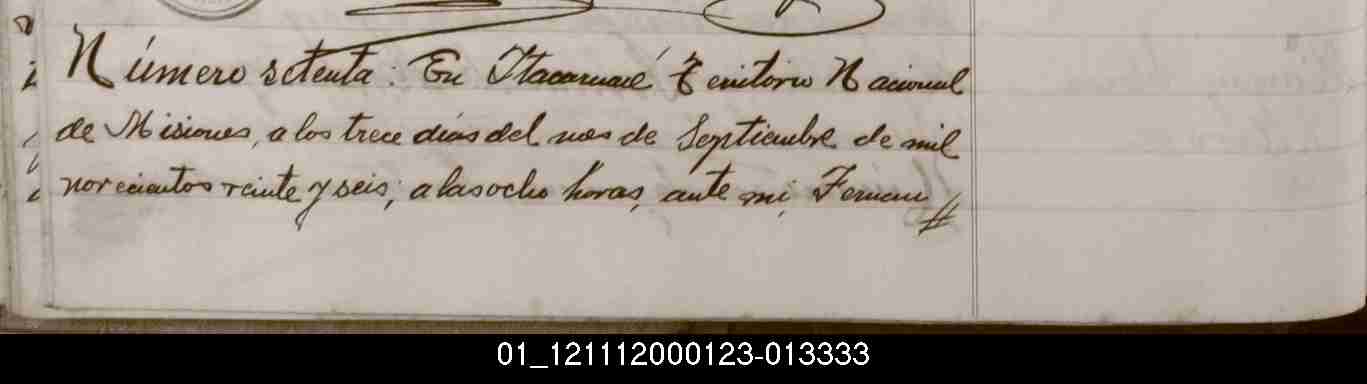 Número setenta: En Itacaruaré Territorio Nacional
de Misiones, a los trece dias del mes de Septiembre de mil
novecientos veinte y seis; a las ocho horas, ante mi, Fernan
01_121112000123-013333